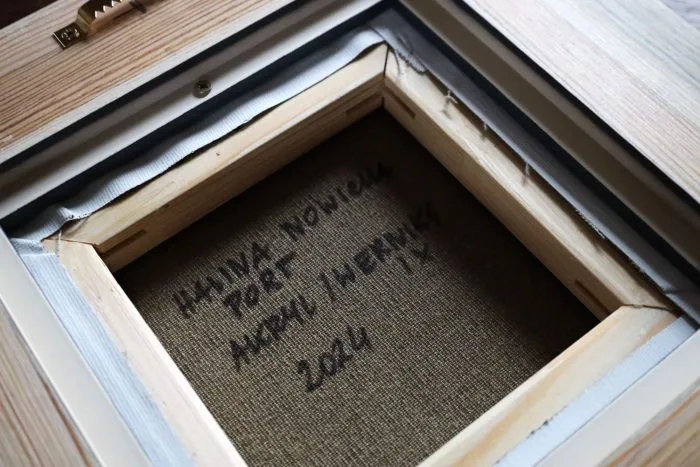 HALINA NOWICKA
PORT
AKRYL / WERNIKS
IX
2024